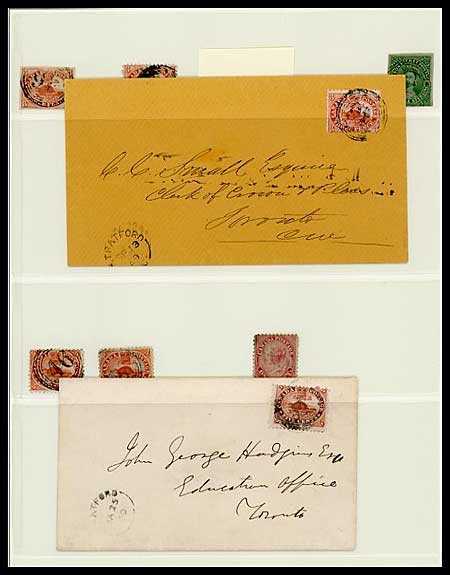 C. C. Small Esquire
Clerk of Crown & Pleas
Toronto
CW
STRATFORD
John George Hodgins Esq
Education Office
Toronto
ATFORD
25